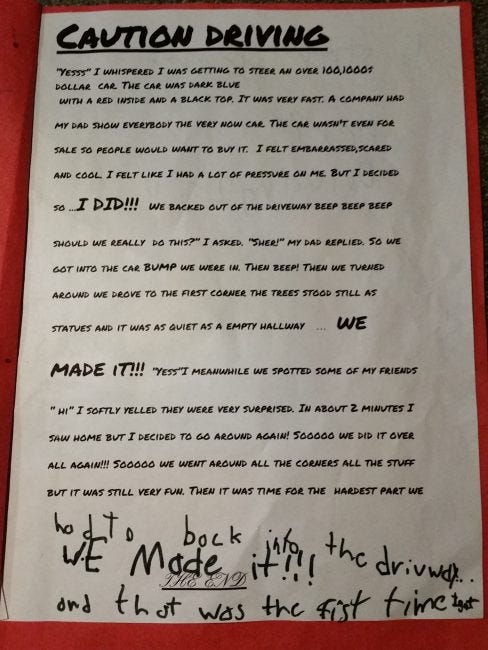 CAUTION DRIVING
"YESSS" I WHISPERED I WAS GETTING TO STEER AN OVER 100,1000$
DOLLAR CAR. THE CAR WAS DARK BLUE
WITH A RED INSIDE AND A BLACK TOP. IT WAS VERY FAST. A COMPANY HAD
MY DAD SHOW EVERYBODY THE VERY NOW CAR. THE CAR WASN'T EVEN FOR
SALE SO PEOPLE WOULD WANT TO BUY IT. I FELT EMBARRASSED,SCARED
AND COOL. I FELT LIKE I HAD A LOT OF PRESSURE ON ME. BUT I DECIDED
SO ...I DID!!! WE BACKED OUT OF THE DRIVEWAY BEEP BEEP BEEP
SHOULD WE REALLY DO THIS?" I ASKED. "SHER!" MY DAD REPLIED. SO WE
GOT INTO THE CAR BUMP WE WERE IN. THEN BEEP! THEN WE TURNED
AROUND WE DROVE TO THE FIRST CORNER THE TREES STOOD STILL AS
STATUES AND IT WAS AS QUIET AS A EMPTY HALLWAY ... WE
MADE IT!!! "YESS"I MEANWHILE WE SPOTTED SOME OF MY FRIENDS
" HI" I SOFTLY YELLED THEY WERE VERY SURPRISED. IN ABOUT 2 MINUTES I
SAW HOME BUT I DECIDED TO GO AROUND AGAIN! SOOOOO WE DID IT OVER
ALL AGAIN!!! SOOOOO WE WENT AROUND ALL THE CORNERS ALL THE STUFF
BUT IT WAS STILL VERY FUN. THEN IT WAS TIME FOR THE HARDEST PART WE
had to back into the driveway...
WE Made it!!!
THE END
and that was the fist time I got